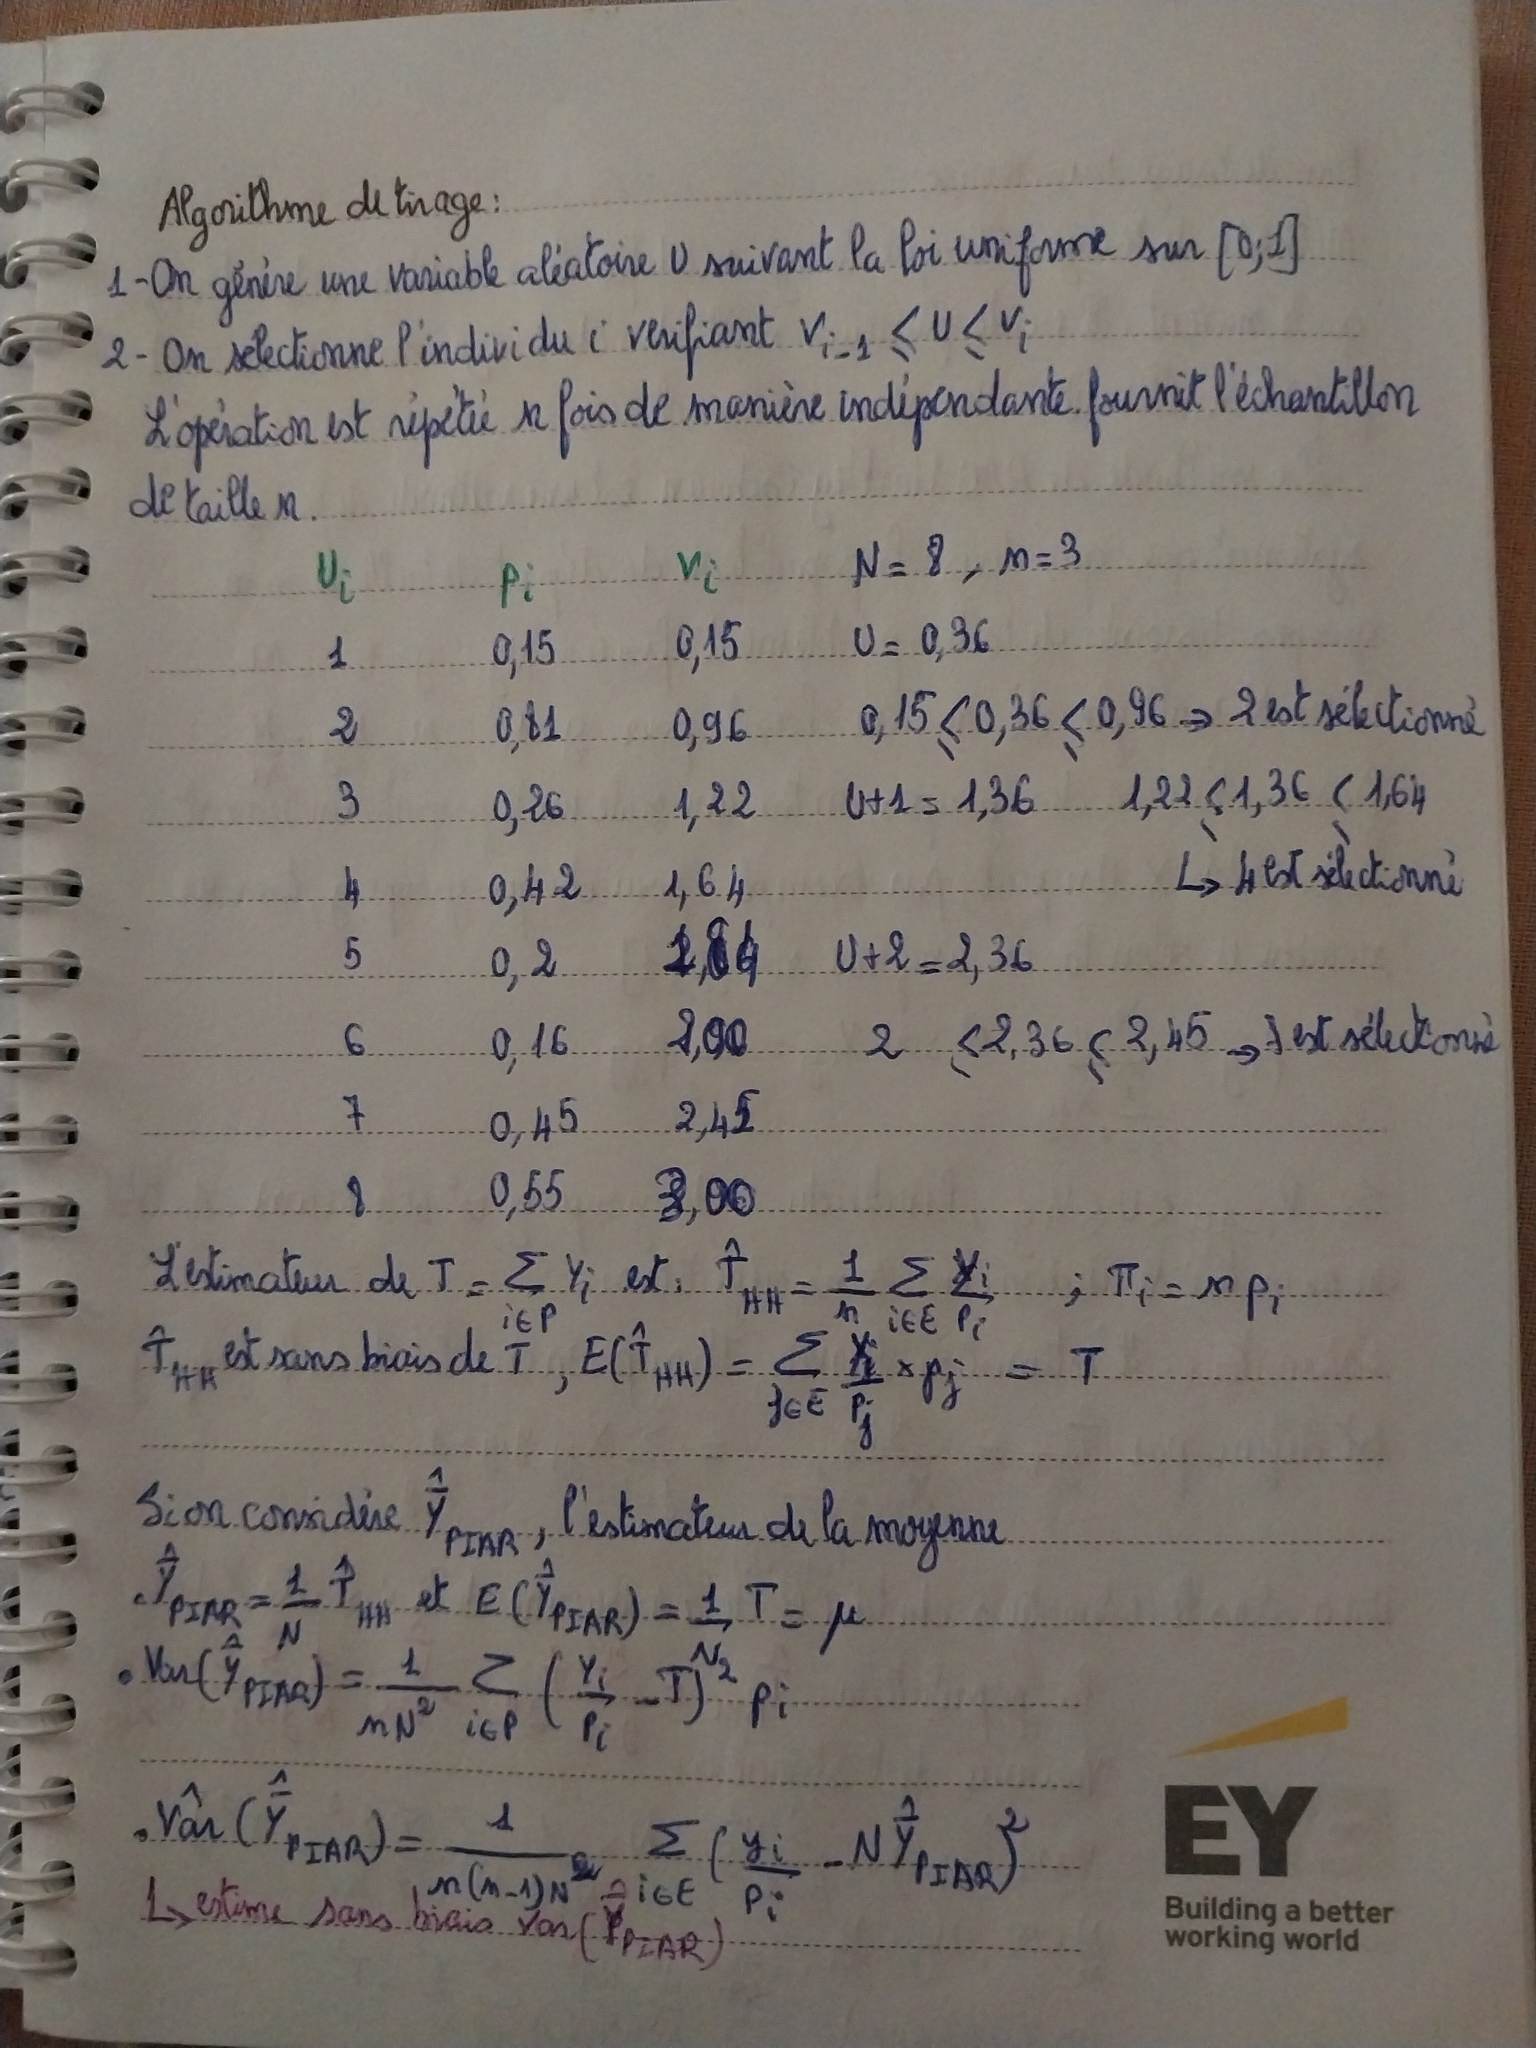 Algorithme de tirage:
1-On génère une variable aléatoire U suivant la loi uniforme sur [0;1]
2- On sélectionne l'individu i verifiant Vi-1 ≤ U ≤ Vi
L'opération est répétée n fois de manière indépendante. fournit l'échantillon
de taille n.
Ui pi Vi N = 8 , n=3
1 0,15 0,15 U= 0,36
2 0,81 0,96 0,15 ≤ 0,36 ≤ 0,96 → 2 est sélectionné
3 0,26 1,22 U+1 = 1,36 1,22 ≤ 1,36 ≤ 1,64
4 0,42 1,64 ↳ 4 est sélectionné
5 0,2 1,84 U+2 = 2,36
6 0,16 2,00 2 ≤ 2,36 ≤ 2,45 → 7 est sélectionné
7 0,45 2,45
8 0,55 3,00
L'estimateur de T = Σ i∈P Yi est: T̂HH = 1/n Σ i∈E Yi/Pi ; πi = n pi
T̂HH est sans biais de T , E(T̂HH) = Σ j∈E Yj/Pj × pj = T
Si on considère Ȳ̂PIAR, l'estimateur de la moyenne
. Ȳ̂PIAR = 1/N T̂HH et E(Ȳ̂PIAR) = 1/N T = µ
• Var(Ȳ̂PIAR) = 1/nN² Σ i∈P (Yi/Pi - T)² pi
. Vâr(Ȳ̂PIAR) = 1/n(n-1)N² Σ i∈E (yi/Pi - NȲ̂PIAR)²
↳ estime sans biais Var(Ȳ̂PIAR)
EY
Building a better
working world